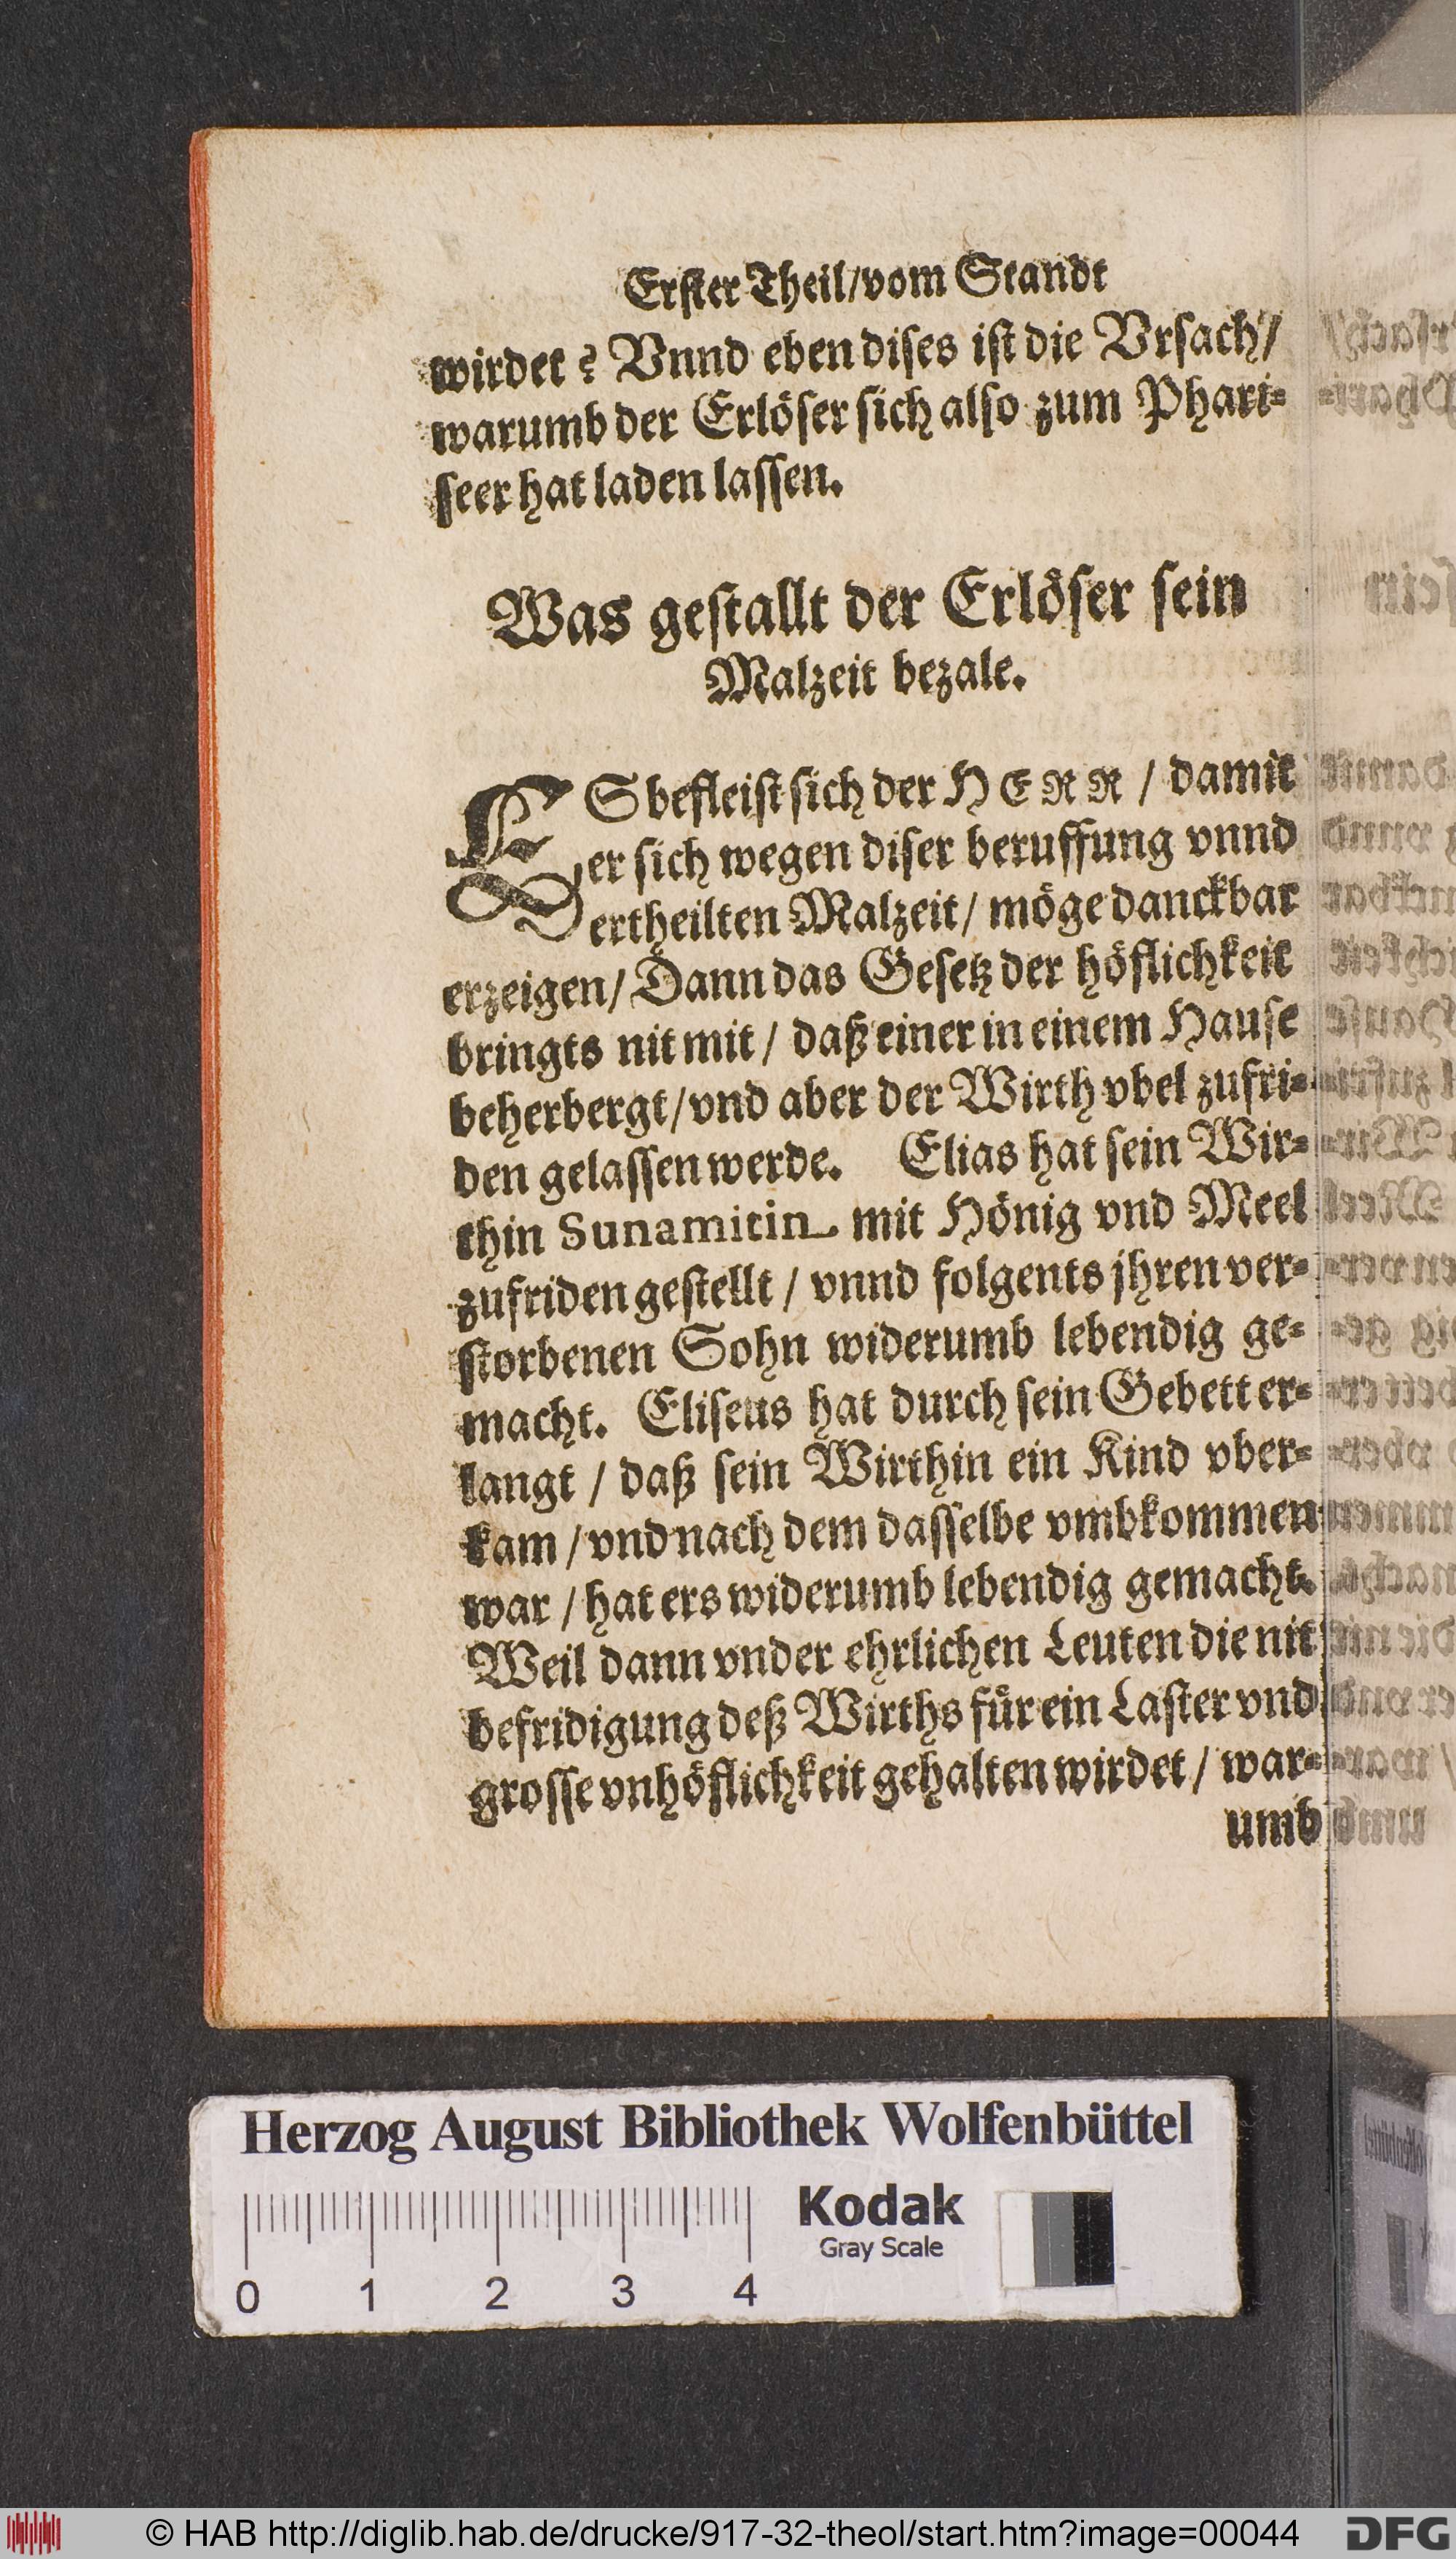 Erster Theil/vom Standt
wirdet? Vnnd eben dises ist die Vrsach/
warumb der Erlöser sich also zum Phari-
seer hat laden lassen.
Was gestallt der Erlöser sein
Malzeit bezale.
ES befleist sich der HERR / damit
er sich wegen diser beruffung vnnd
ertheilten Malzeit/ möge danckbar
erzeigen/ Dann das Gesetz der höflichkeit
bringts nit mit / daß einer in einem Hause
beherbergt/vnd aber der Wirth vbel zufri-
den gelassen werde. Elias hat sein Wir-
thin Sunamitin mit Hönig vnd Meel
zufriden gestellt / vnnd folgents jhren ver-
storbenen Sohn widerumb lebendig ge-
macht. Eliseus hat durch sein Gebett er-
langt / daß sein Wirthin ein Kind vber-
kam / vnd nach dem dasselbe vmbkommen
war / hat ers widerumb lebendig gemacht.
Weil dann vnder ehrlichen Leuten die nit
befridigung deß Wirths für ein Laster vnd
grosse vnhöflichkeit gehalten wirdet / war-
umb
Herzog August Bibliothek Wolfenbüttel
Kodak
Gray Scale
0 1 2 3 4
© HAB http://diglib.hab.de/drucke/917-32-theol/start.htm?image=00044
DFG